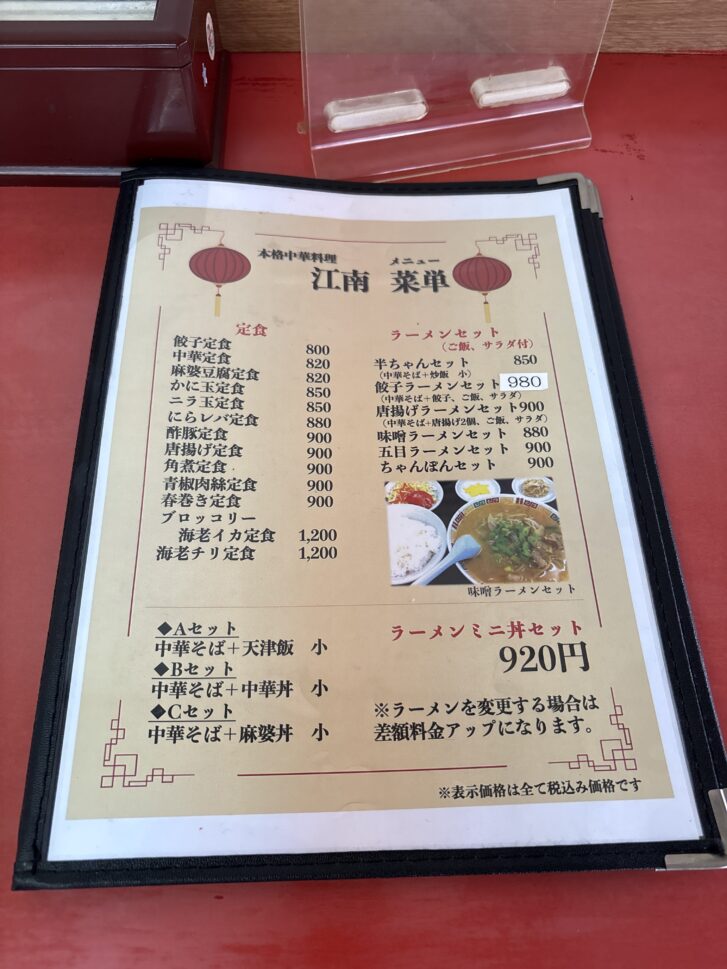 本格中華料理 メニュー
江南 菜単
定食
餃子定食 800
中華定食 820
麻婆豆腐定食 820
かに玉定食 850
ニラ玉定食 850
にらレバ定食 880
酢豚定食 900
唐揚げ定食 900
角煮定食 900
青椒肉絲定食 900
春巻き定食 900
ブロッコリー
海老イカ定食 1,200
海老チリ定食 1,200
ラーメンセット
(ご飯、サラダ付)
半ちゃんセット 850
(中華そば+炒飯 小)
餃子ラーメンセット 980
(中華そば+餃子、ご飯、サラダ)
唐揚げラーメンセット900
(中華そば+唐揚げ2個、ご飯、サラダ)
味噌ラーメンセット 880
五目ラーメンセット 900
ちゃんぽんセット 900
味噌ラーメンセット
◆Aセット
中華そば+天津飯 小
◆Bセット
中華そば+中華丼 小
◆Cセット
中華そば+麻婆丼 小
ラーメンミニ丼セット
920円
※ラーメンを変更する場合は
差額料金アップになります。
※表示価格は全て税込み価格です